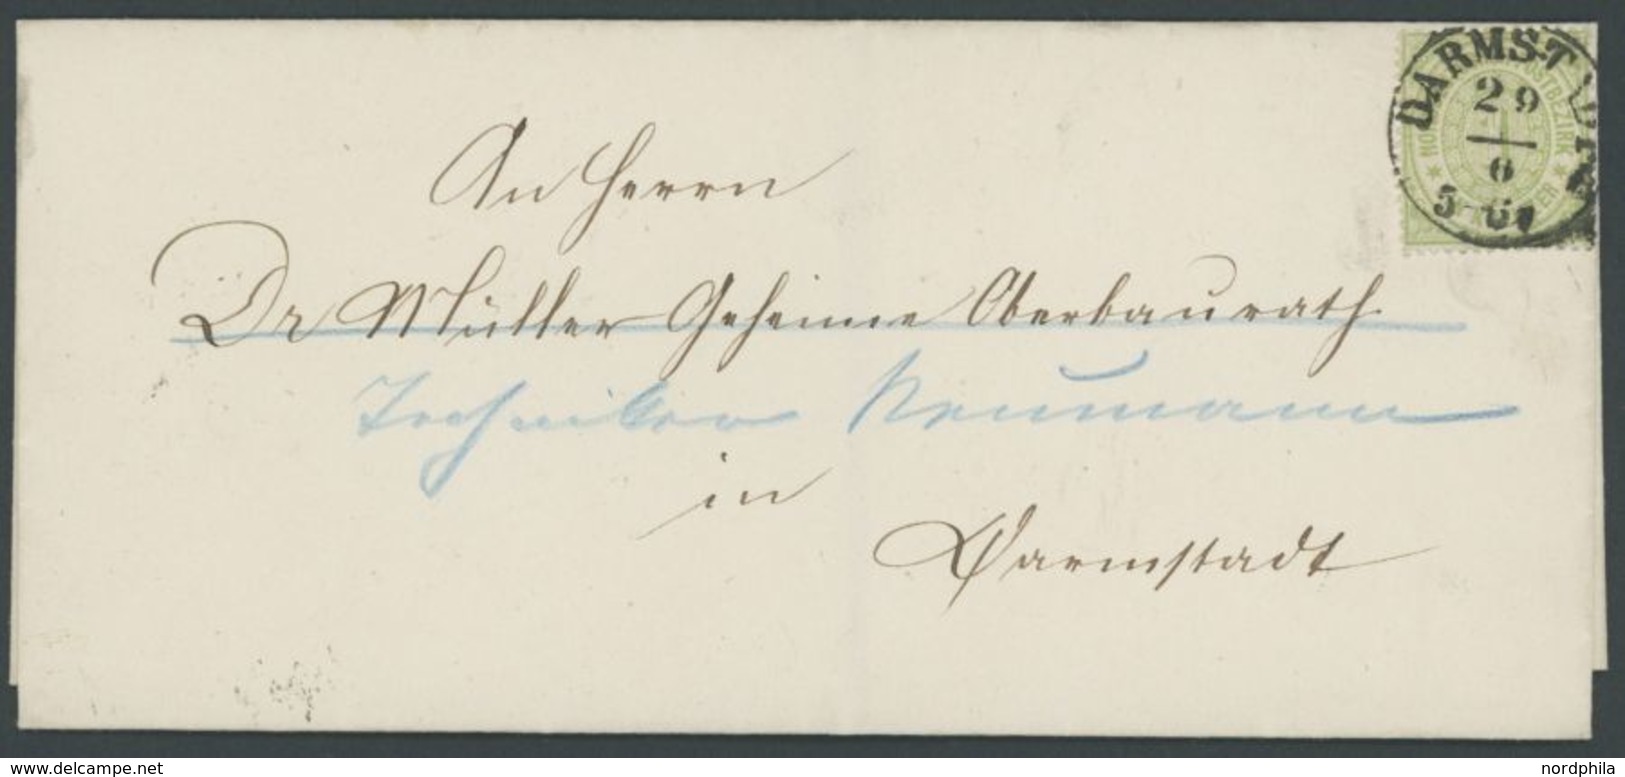 DARMSTADT
29
6
NORDDEUTSCHER POSTBEZIRK
An Herrn
Dr Müller Geheime Oberbaurath
Neumann
in
Darmstadt
www.delcampe.net
nordphila